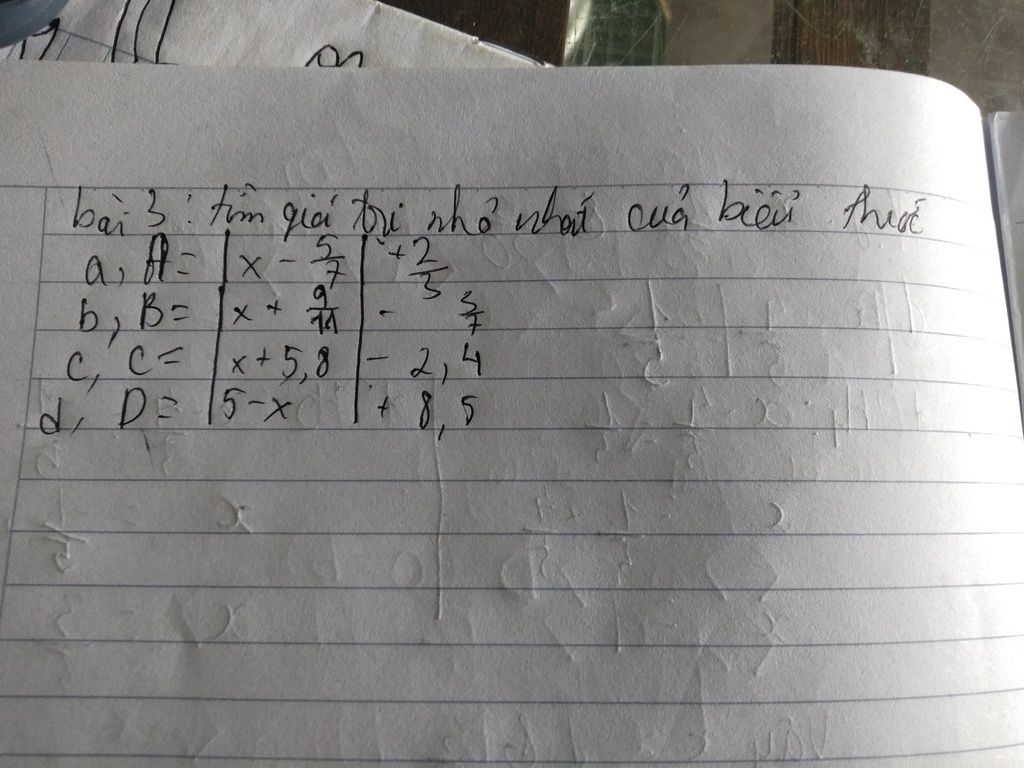 bài 3: tìm giá trị nhỏ nhất của biểu thức
a, A = |x - 5/7| + 2/3
b, B = |x + 9/11| - 3/7
c, C = |x + 5,8| - 2,4
d, D = |5 - x| + 8,5